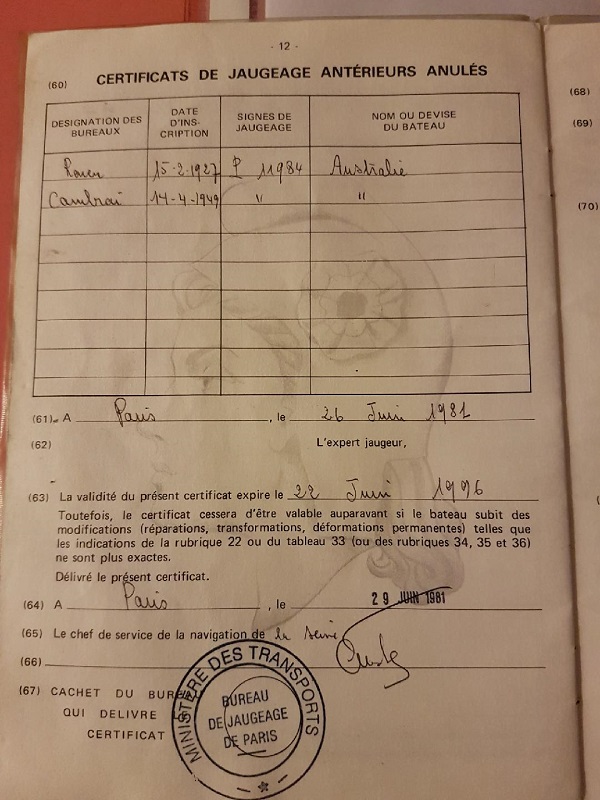 - 12 -
(60) CERTIFICATS DE JAUGEAGE ANTÉRIEURS ANULÉS
DESIGNATION DES BUREAUX DATE D'INS- CRIPTION SIGNES DE JAUGEAGE NOM OU DEVISE DU BATEAU
Rouen 15-2-1927 P 11984 Australie
Cambrai 14-4-1949 " "
(61) - A Paris, le 26 Juin 1981
(62) L'expert jaugeur,
(63) La validité du présent certificat expire le 22 Juin 1996
Toutefois, le certificat cessera d'être valable auparavant si le bateau subit des
modifications (réparations, transformations, déformations permanentes) telles que
les indications de la rubrique 22 ou du tableau 33 (ou des rubriques 34, 35 et 36)
ne sont plus exactes.
Délivré le présent certificat.
(64) A Paris, le 29 JUIN 1981
(65) Le chef de service de la navigation de la Seine
(66)
(67) CACHET DU BUREAU
QUI DELIVRE
CERTIFICAT
MINISTÈRE DES TRANSPORTS
BUREAU
DE JAUGEAGE
DE PARIS
(68)
(69)
(70)